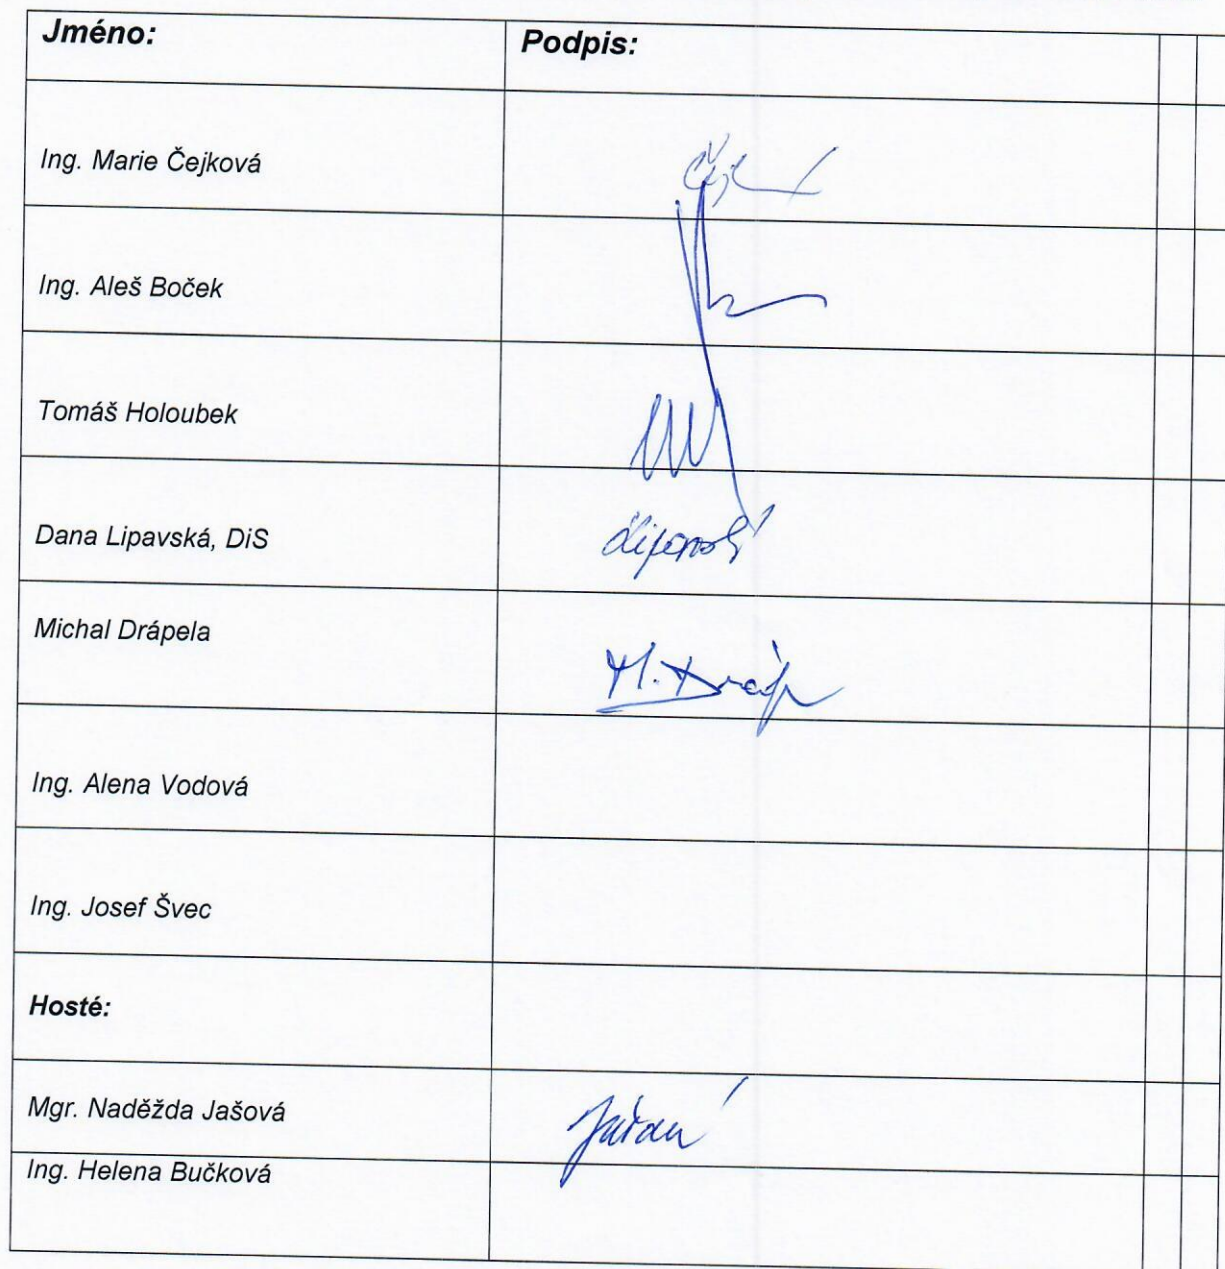 Jméno: Podpis:
Ing. Marie Čejková
Ing. Aleš Boček
Tomáš Holoubek
Dana Lipavská, DiS
Michal Drápela M. Dráp
Ing. Alena Vodová
Ing. Josef Švec
Hosté:
Mgr. Naděžda Jašová
Ing. Helena Bučková